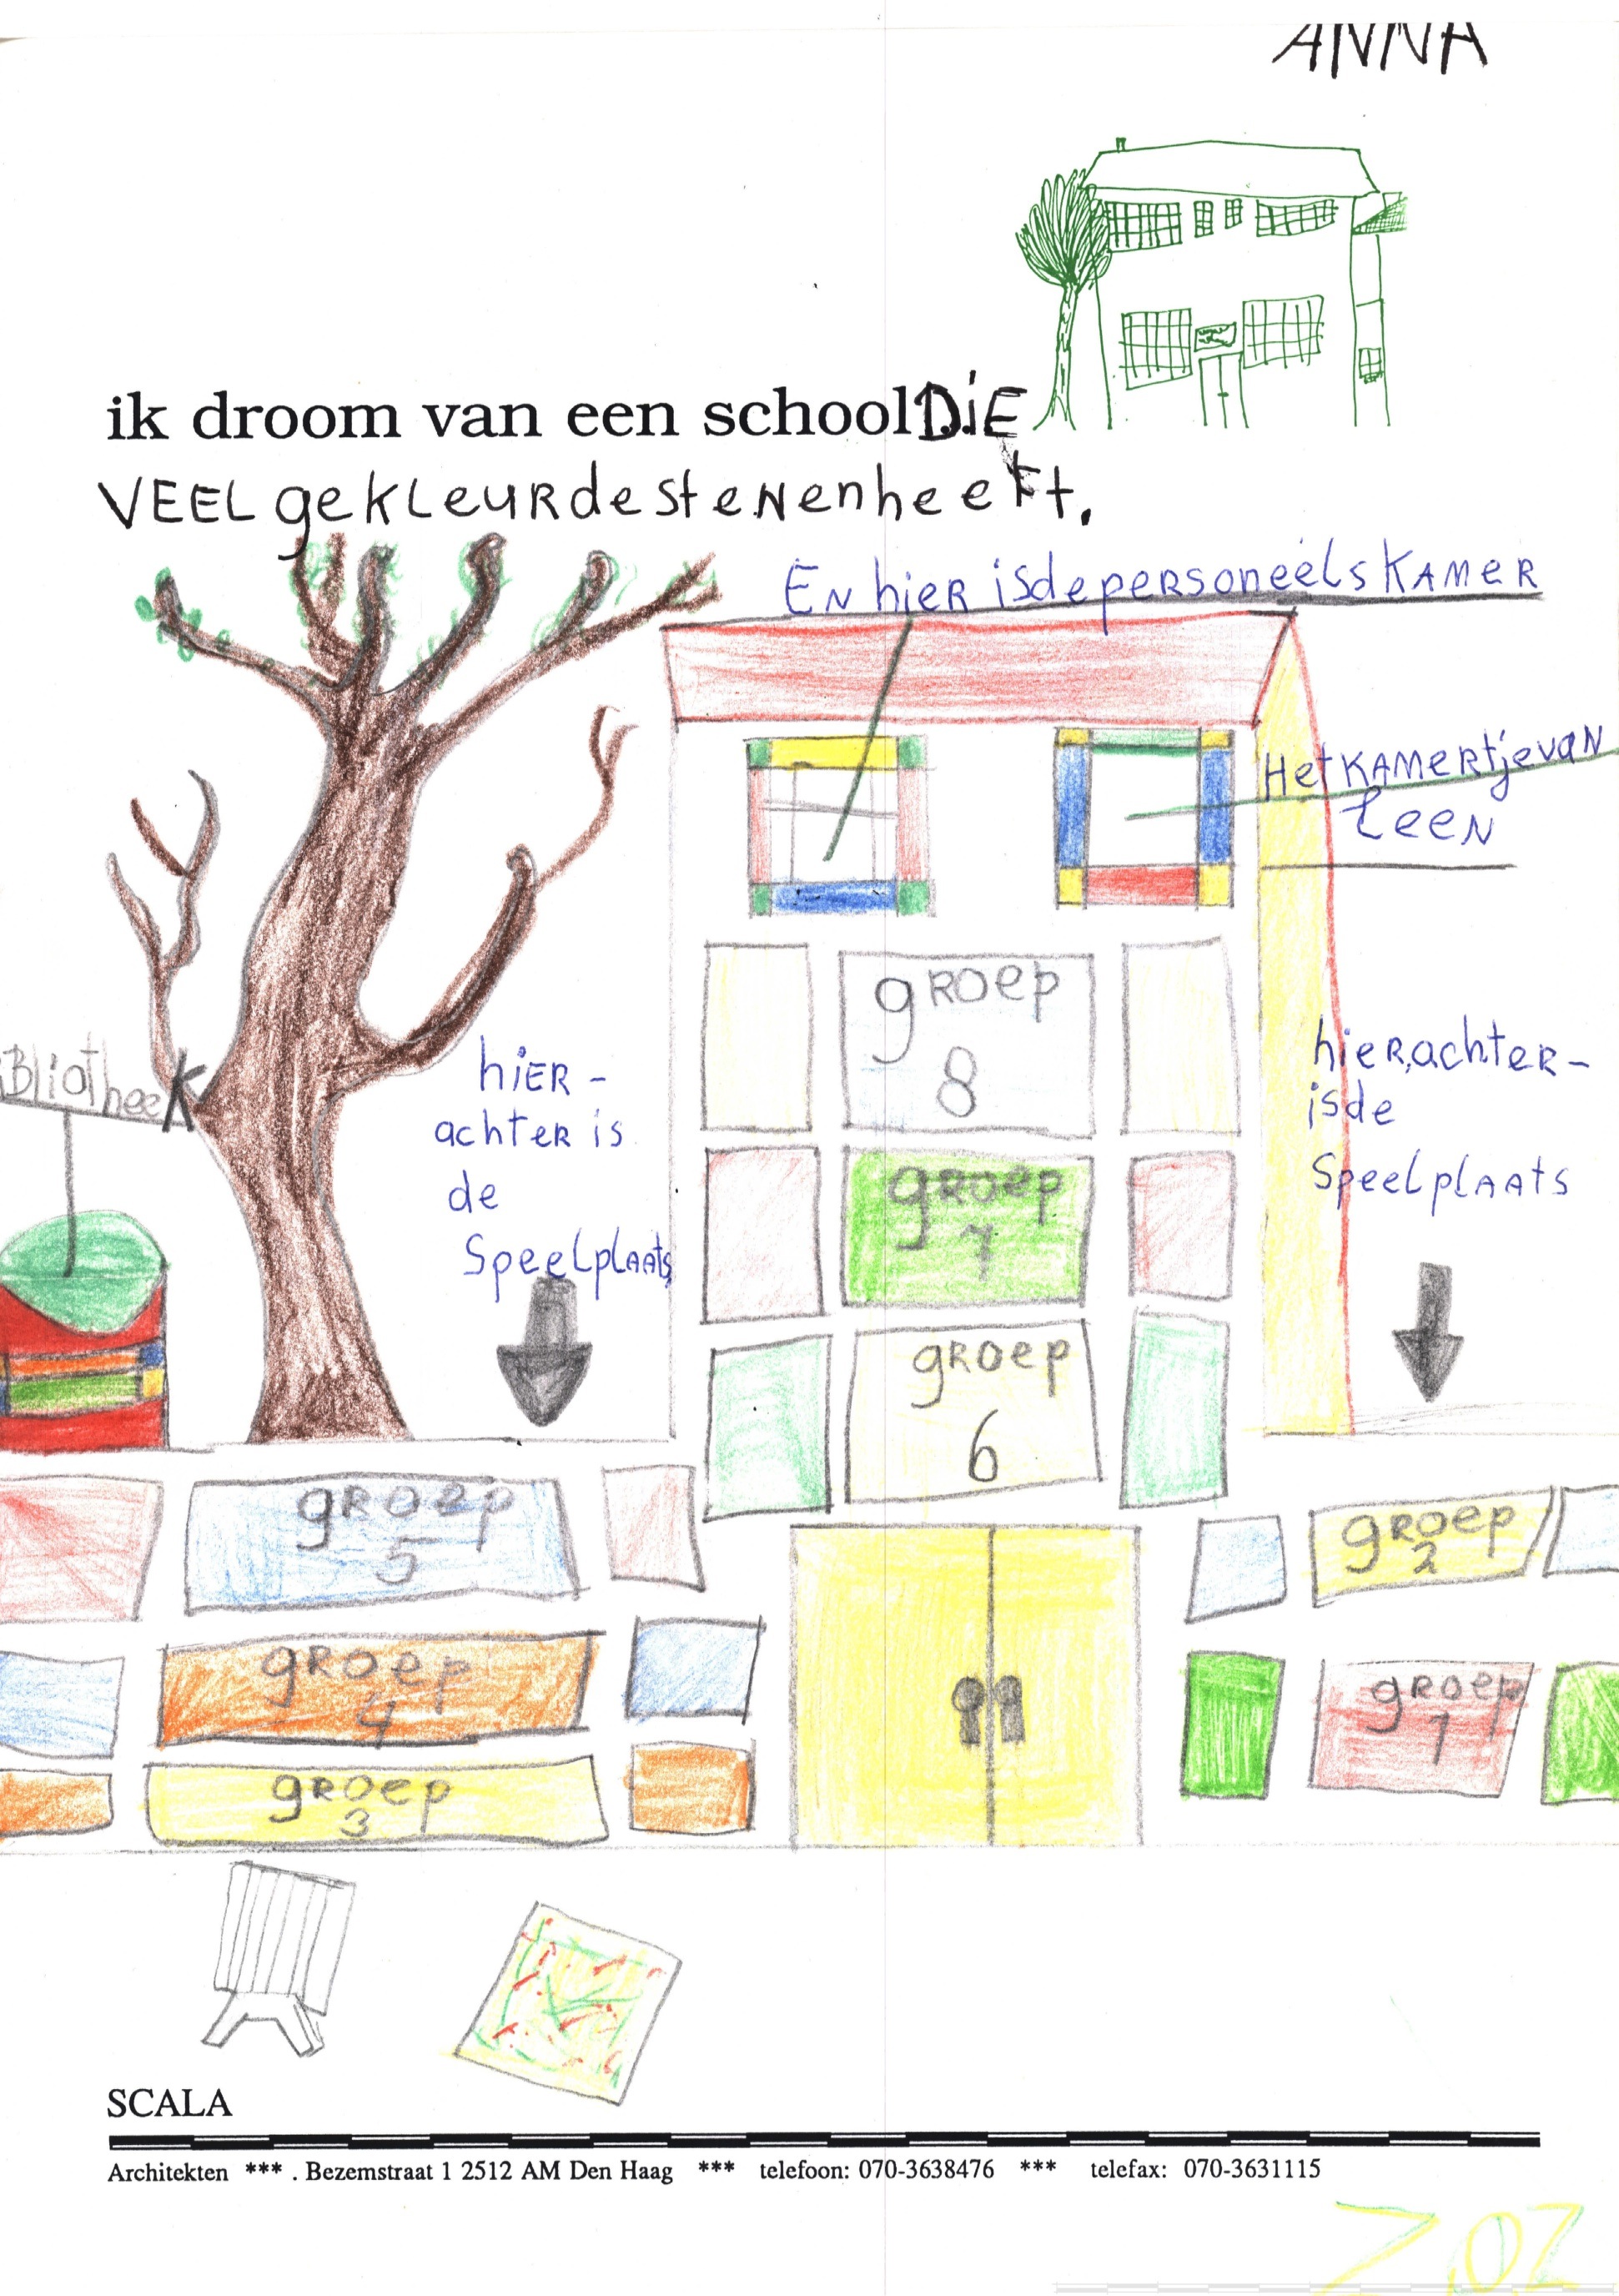 ANNA
ik droom van een school DiE
VEEL gekLeURde steNenheeft.
EN hieR isdepeRsoneels KAMeR
Het KAMeRtje van
Leen
BliotheeK
hiER-
achteR is
de
SpeelplAAts
hieR,achteR-
isde
SpeelplAAts
gRoep
8
gRoep
7
gRoep
6
gRoep
5
gRoep
4
gRoep
3
gRoep
2
gRoep
1
SCALA
Architekten *** . Bezemstraat 1 2512 AM Den Haag *** telefoon: 070-3638476 *** telefax: 070-3631115